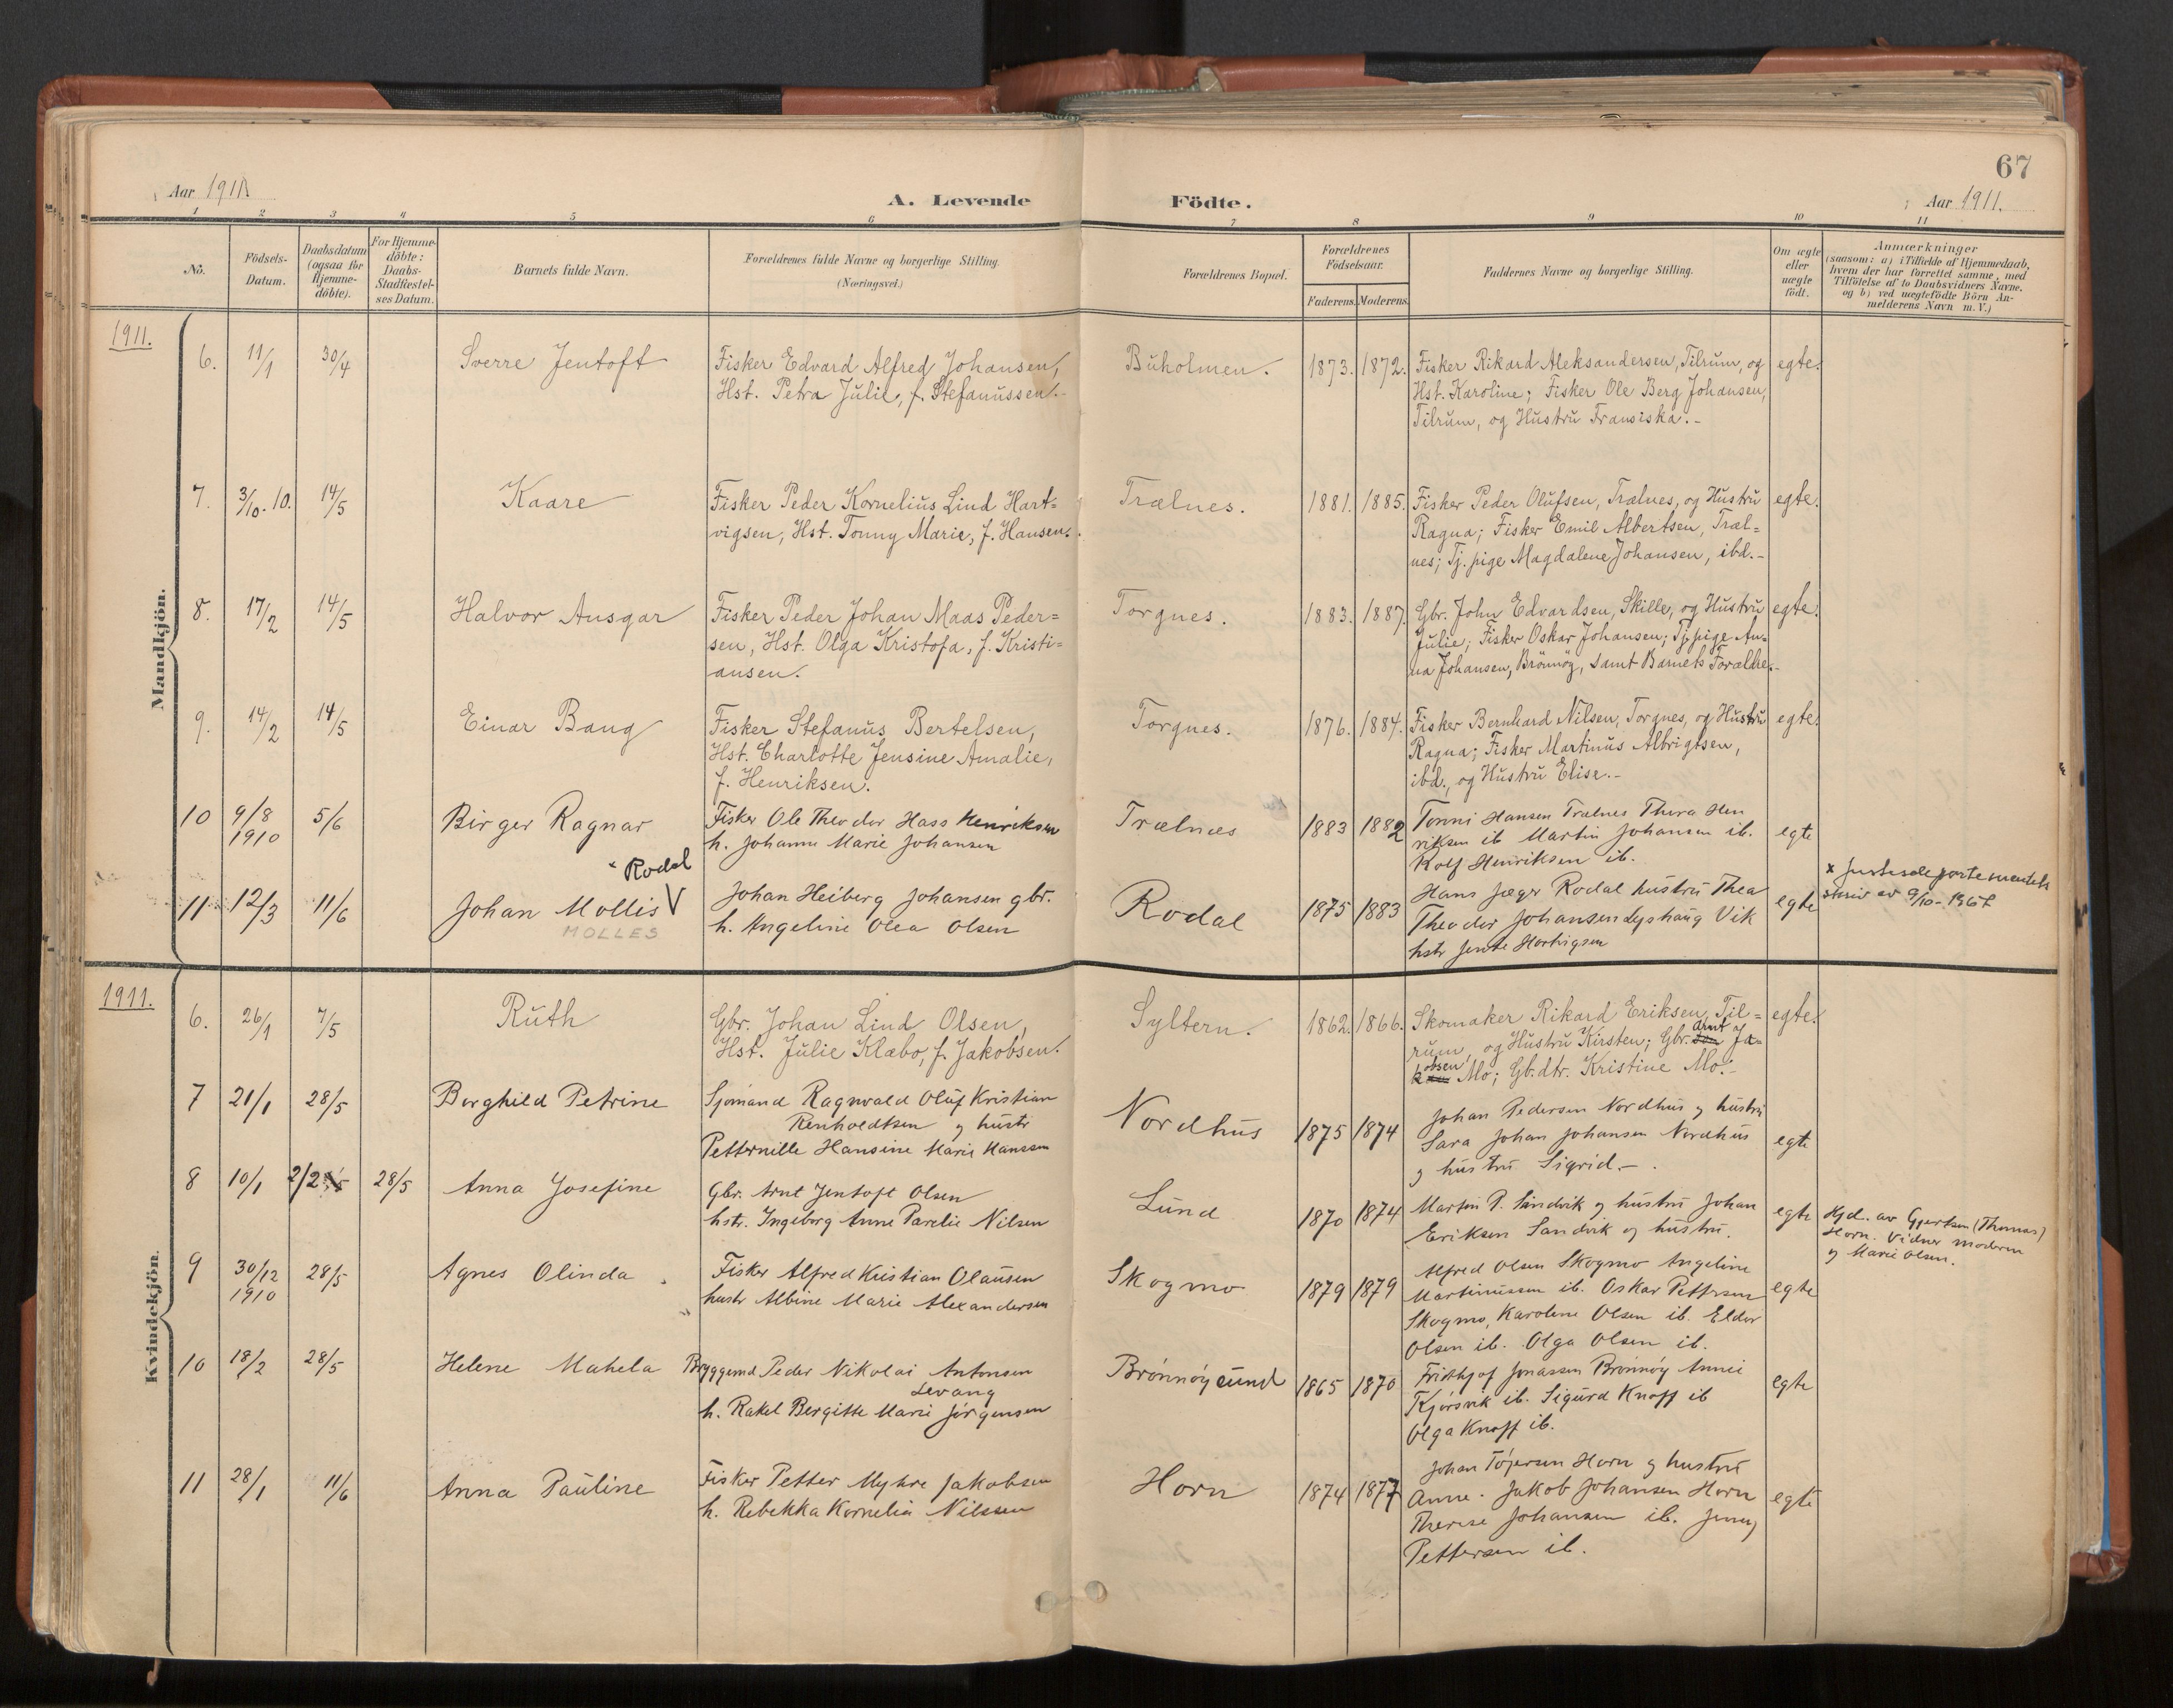 67
Aar 1911.
A. Levende Födte.
Aar 1911.
1 2 3 4 5 6 7 8 9 10 11
No.
Födsels-Datum.
Daabsdatum (ogsaa for Hjemme-döbte).
For Hjemme-döbte: Daabs-Stadfæstel-ses Datum.
Barnets fulde Navn.
Forældrenes fulde Navne og borgerlige Stilling.
(Næringsvei.)
Forældrenes Bopæl.
Forældrenes Födselsaar.
Faderens. Moderens.
Faddernes Navne og borgerlige Stilling.
Om ægte eller uægte födt.
Anmærkninger
(saasom: a) i Tilfælde af Hjemmedaab,
hvem der har forrettet samme, med
Tilföielse af to Daabsvidners Navne,
og b) ved uægtefödte Börn An-
melderens Navn m. V.)
1911.
Mandkjön.
6. 11/1 30/4 Sverre Jentoft
Fisker Edvard Alfred Johansen,
Hst. Petra Julie, f. Stefanussen.-
Buholmen. 1873. 1872.
Fisker Rikard Aleksandersen, Tilrum, og
Hst. Karoline; Fisker Ole Berg Johansen,
Tilrum, og Hustru Fransiska.-
egte.
7. 3/10.10. 14/5 Kaare
Fisker Peder Kornelius Lind Hart=
vigsen, Hst. Tonny Marie, f. Hansen.
Trælnes. 1881. 1885.
Fisker Peder Olufsen, Trælnes, og Hustru
Ragna; Fisker Emil Albertsen, Træl=
nes; Tj.pige Magdalene Johansen, ibd.-
egte.
8. 17/2 14/5 Halvor Ansgar
Fisker Peder Johan Maas Peder=
sen, Hst. Olga Kristofa, f. Kristi=
ansen.
Torgnes. 1883. 1887.
Gbr. John Edvardsen, Skille, og Hustru
Julie; Fisker Oskar Johansen; Tj.pige An=
na Johansen, Brönnöy, samt Barnets Forældre.-
egte.
9. 14/2 14/5 Einar Bang
Fisker Stefanus Bertelsen,
Hst. Charlotte Jensine Amalie,
f. Henriksen.
Torgnes. 1876. 1884.
Fisker Bernhard Nilsen, Torgnes, og Hustru
Ragna; Fisker Martinus Albrigtsen,
ibd., og Hustru Elise.-
egte.
10 9/8 1910 5/6 Birger Ragnar
Fisker Ole Theodor Hass Henriksen
h. Johanne Marie Johansen
Trælnæs 1883 1882
Tonni Hansen Trælnes Thora Hen
riksen ib Martin Johansen ib.
Rolf Henriksen ib.
egte
11 12/3 11/6 Johan Mollis V
x Rodal
MOLLES
Johan Heiberg Johansen gbr.
h. Angeline Olea Olsen
Rodal 1875 1883
Hans Jæger Rodal hustru Thea
Theodor Johansen Lyshaug Vik
hstr Jente Hartvigsen
egte
x Justisdepartementets
skriv av 9/10-1967
1911.
Kvindekjön.
6. 26/1 7/5 Ruth
Gbr. Johan Lind Olsen,
Hst. Julie Klæbo, f. Jakobsen.
Syltern. 1862. 1866.
Skomaker Rikard Eriksen, Til=
rum, og Hustru Kirsten; Gbr. Arnt Ja=
kobsen Mo; Gb.dtr. Kristine Mo.-
egte.
7 21/1 28/5 Borghild Petrine
Sjømand Ragnvald Oluf Kristian
Renholdtsen og hustr
Petternille Hansine Marie Hanssen
Nordhus 1875 1874
Johan Pedersen Nordhus og hustru
Sara Johan Johansen Nordhus
og hustru Sigrid.-
egte
8 10/1 2/2 28/5 Anna Josefine
Gbr. Arnt Jentoft Olsen
hstr. Ingeborg Anne Parelie Nilsen
Lund 1870 1874
Martin P. Sandvik og hustru Johan
Eriksen Sandvik og hustru.
egte
Hjd. av Gjertsen (Thomas)
Horn. Vidner moderen
og Marie Olsen.
9 30/12 1910 28/5 Agnes Olinda
Fisker Alfred Kristian Olausen
hustr Albine Marie Alexandersen
Skogmo 1879 1879
Alfred Olsen Skogmo Angeline
Martinussen ib. Oskar Pettersen
Skogmo, Karolene Olsen ib. Eldor
Olsen ib. Olga Olsen ib.
egte
10 18/2 28/5 Helene Mahela
Bryggemd Peder Nikolai Antonsen
Levang
h. Rakel Bergitte Marie Jörgensen
Brönnöysund 1865 1870
Fridthjof Jonassen Brönnöy Annei
Kjörsvik ib. Sigurd Knoff ib
Olga Knoff ib.
egte
11 28/1 11/6 Anna Pauline
Fisker Petter Myhre Jakobsen
h. Rebekka Kornelia Nilssen
Horn 1874 1877
Johan Töjersen Horn og hustru
Anne. Jakob Johansen Horn
Therese Johansen ib. Jenny
Pettersen ib.
egte